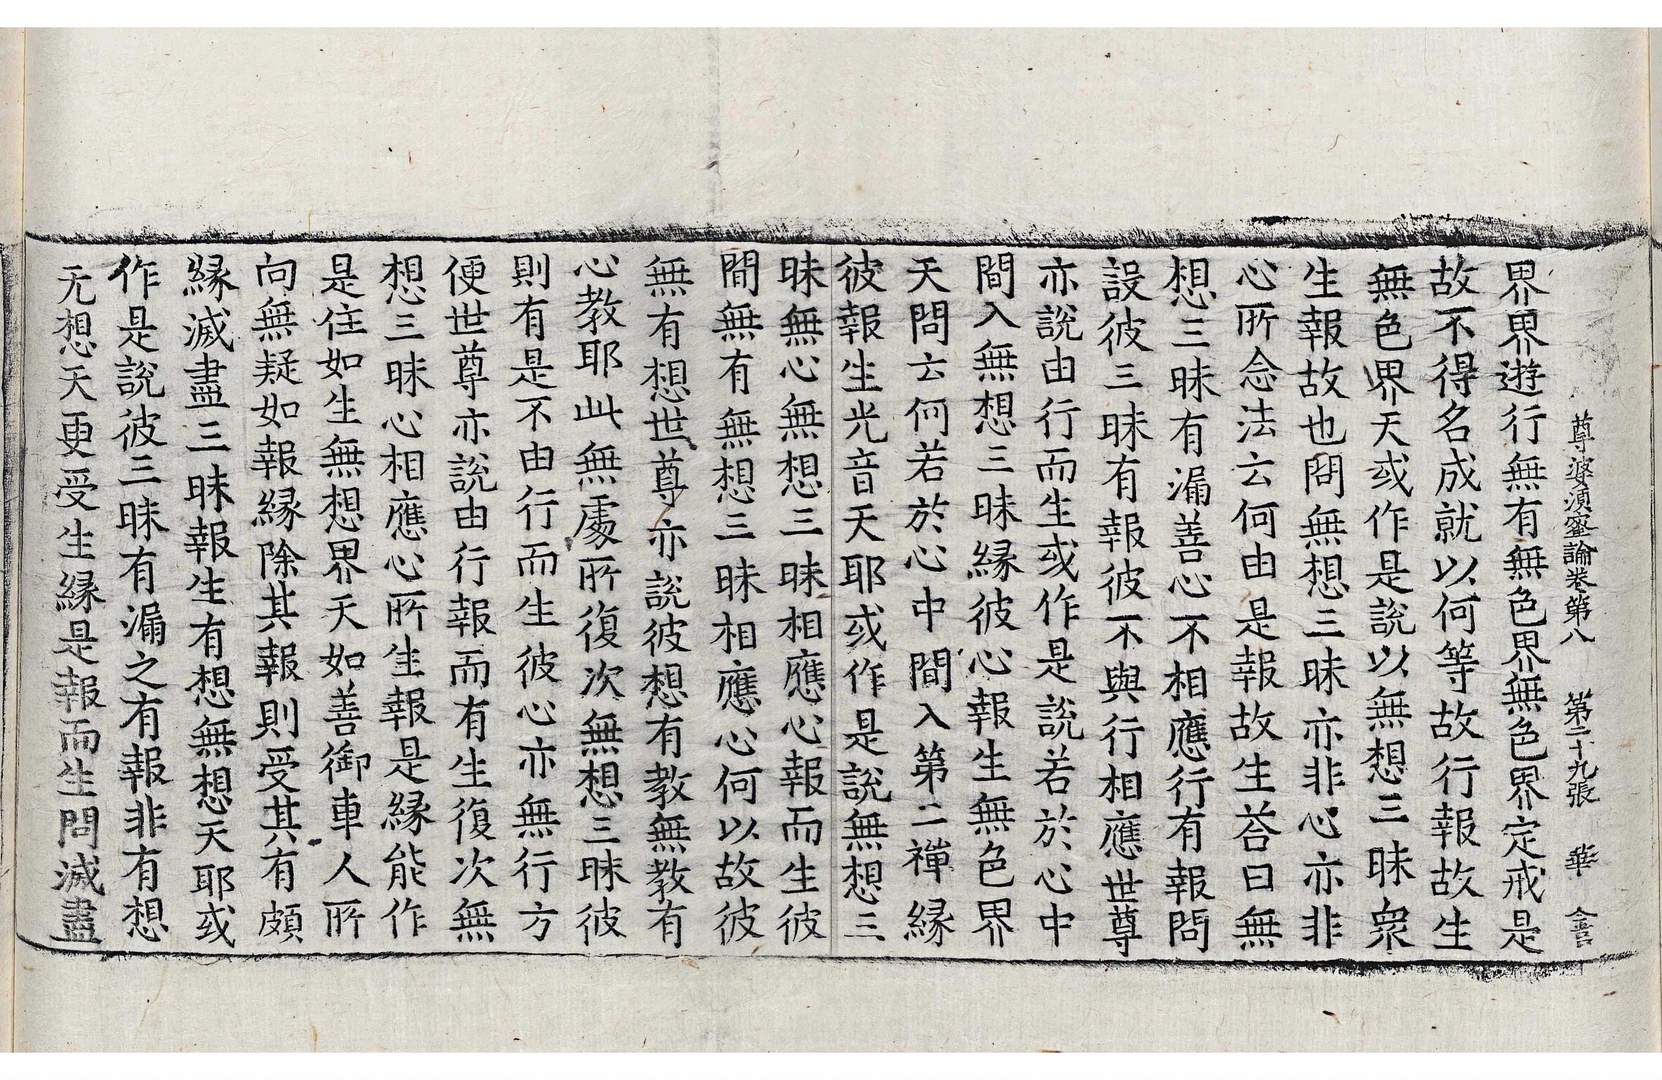 尊婆須蜜論卷第八　第二十九張　華
界界遊行無有無色界無色界定戒是
故不得名成就以何等故行報故生
無色界天或作是說以無想三昧衆
生報故也問無想三昧亦非心亦非
心所念法云何由是報故生荅曰無
想三昧有漏善心不相應行有報問
設彼三昧有報彼不與行相應世尊
亦說由行而生或作是說若於心中
間入無想三昧緣彼心報生無色界
天問云何若於心中間入第二禪緣
彼報生光音天耶或作是說無想三
昧無心無想三昧相應心報而生彼
間無有無想三昧相應心何以故彼
無有想世尊亦說彼想有教無教有
心教耶此無處所復次無想三昧彼
則有是不由行而生彼心亦無行方
便世尊亦說由行報而有生復次無
想三昧心相應心所生報是緣能作
是住如生無想界天如善御車人所
向無疑如報緣除其報則受其有頗
緣滅盡三昧報生有想無想天耶或
作是說彼三昧有漏之有報非有想
无想天更受生緣是報而生問滅盡